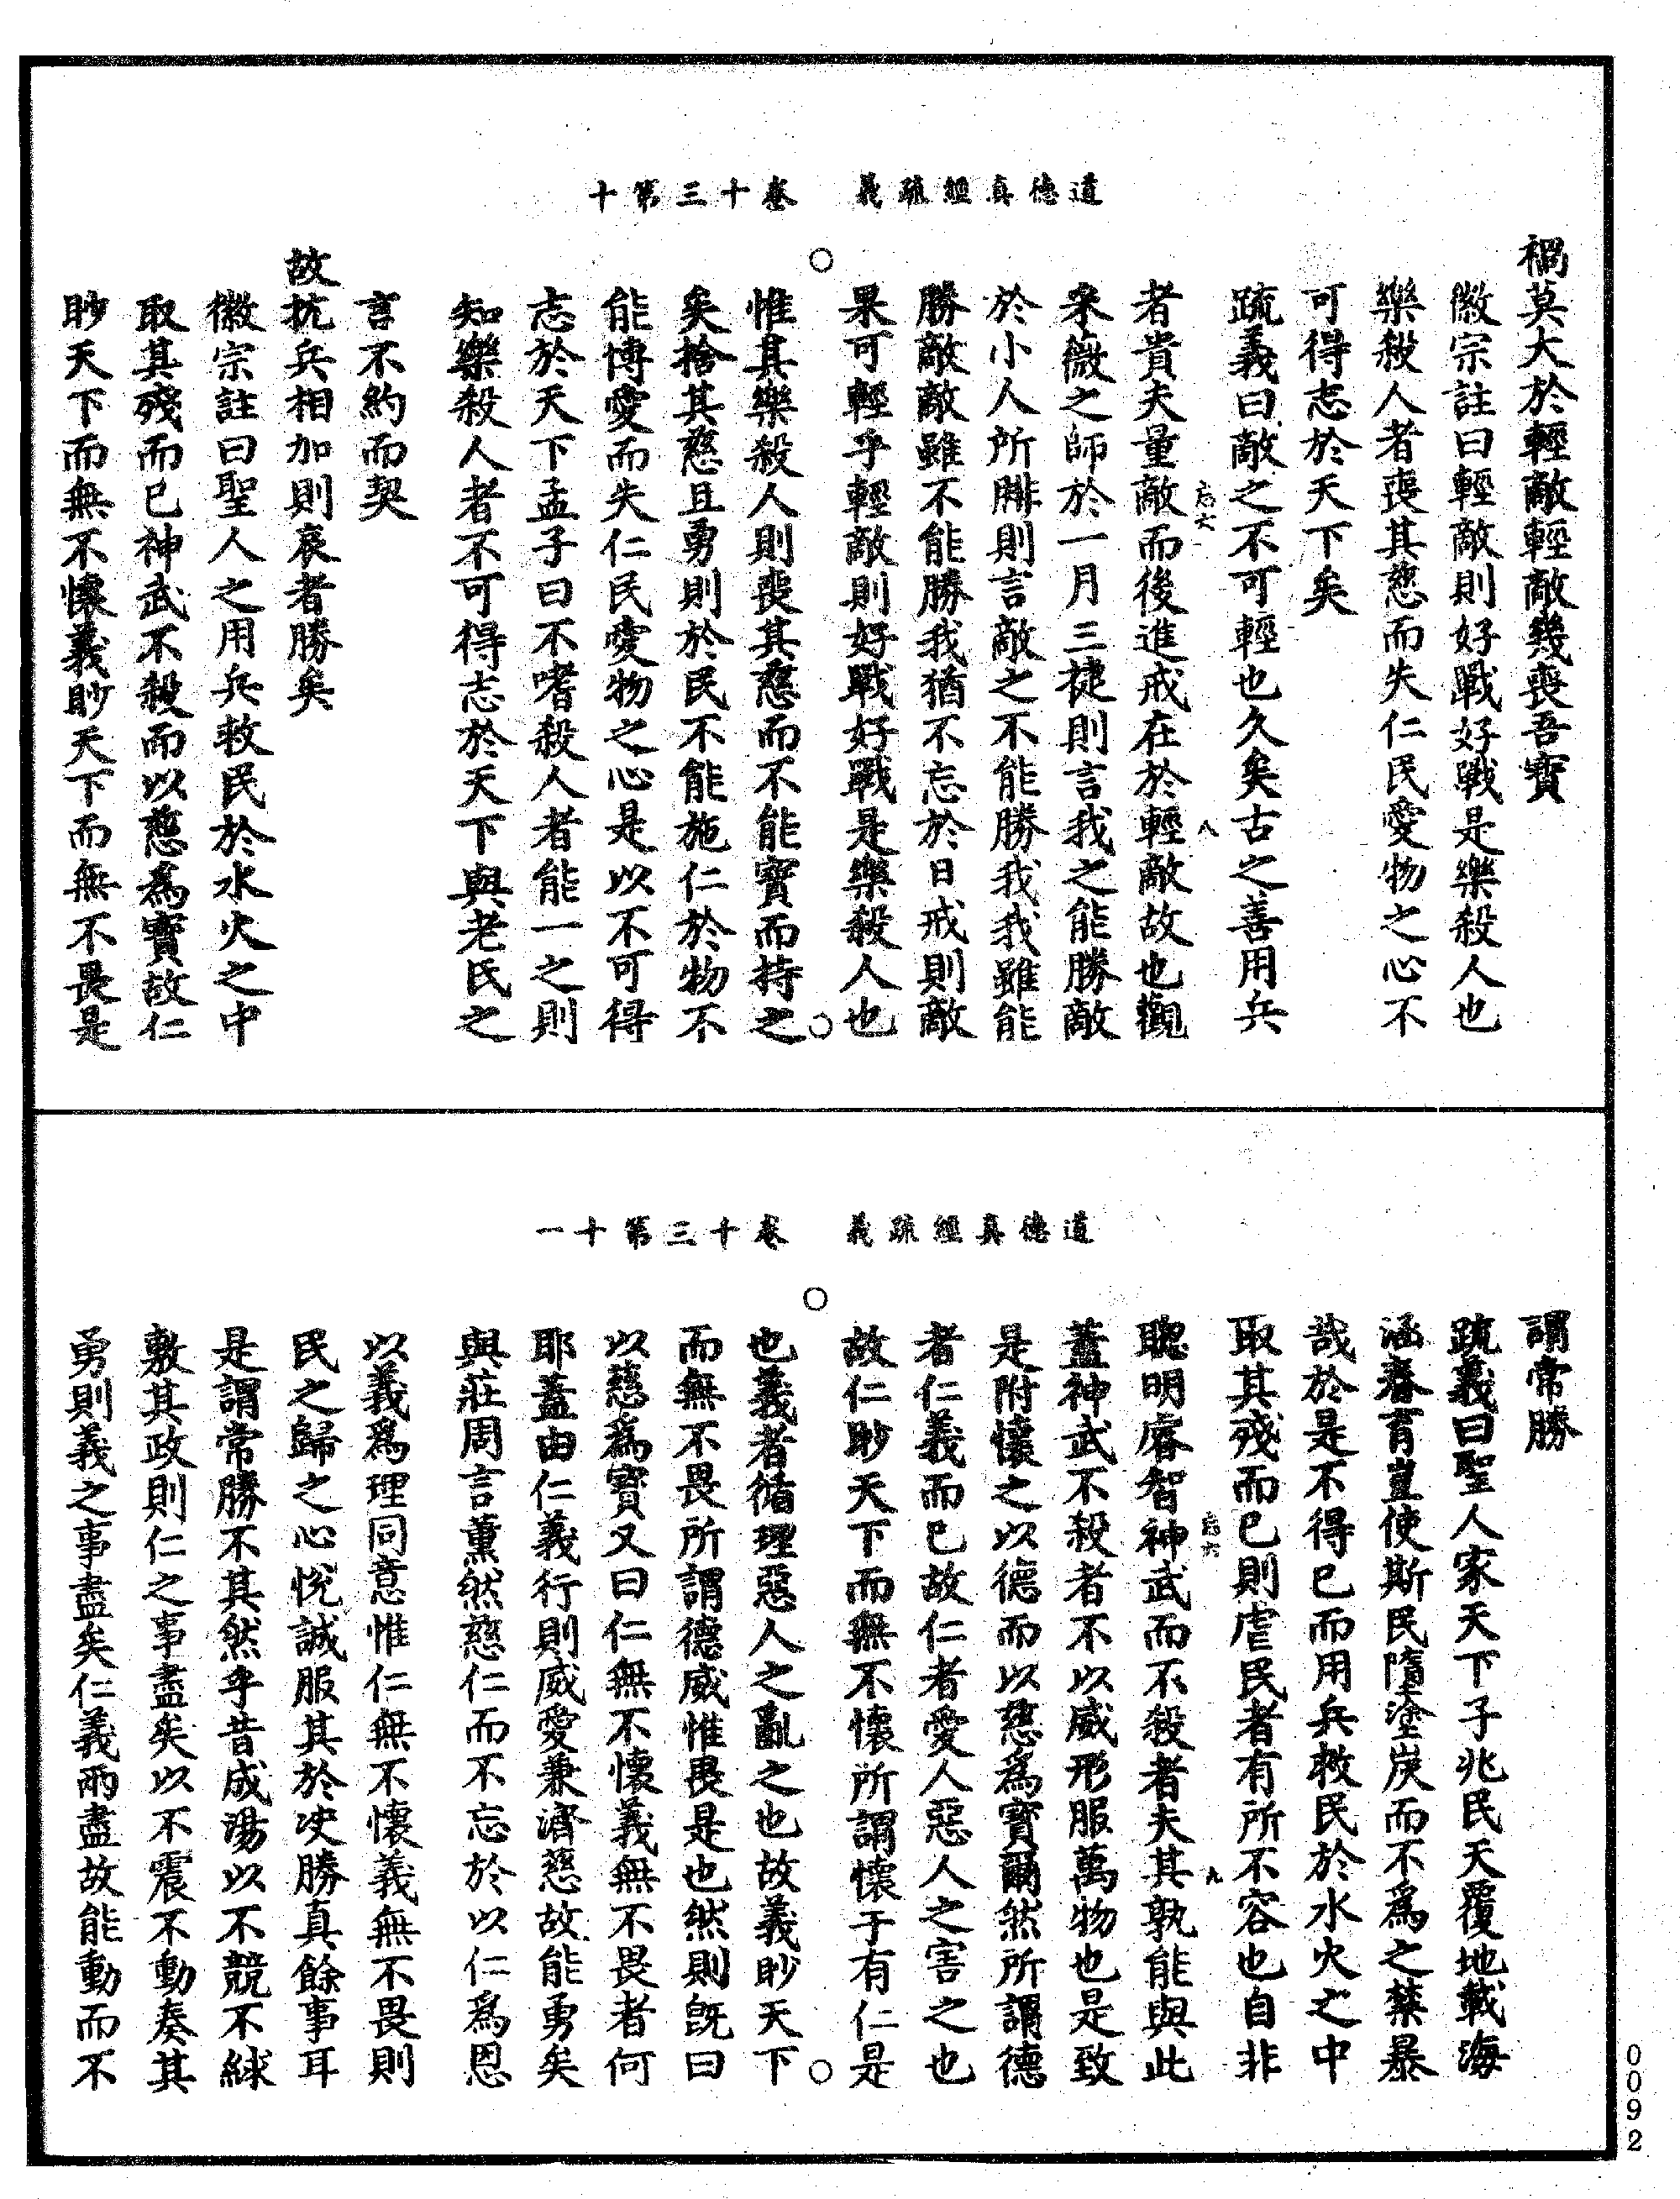 道德真經疏義　卷十三第十
禍莫大於輕敵輕敵幾喪吾寶
徽宗註曰輕敵則好戰好戰是樂殺人也
樂殺人者喪其慈而失仁民愛物之心不
可得志於天下矣
疏義曰敵之不可輕也久矣古之善用兵
者貴夫量敵而後進戒在於輕敵故也觀
采薇之師於一月三捷則言我之能勝敵
於小人所腓則言敵之不能勝我我雖能
勝敵敵雖不能勝我猶不忘於日戒則敵
果可輕乎輕敵則好戰好戰是樂殺人也
惟其樂殺人則喪其慈而不能寶而持之
矣捨其慈且勇則於民不能施仁於物不
能博愛而失仁民愛物之心是以不可得
志於天下孟子曰不嗜殺人者能一之則
知樂殺人者不可得志於天下與老氏之
言不約而契
故抗兵相加則哀者勝矣
徽宗註曰聖人之用兵救民於水火之中
取其殘而已神武不殺而以慈為寶故仁
眇天下而無不懷義眇天下而無不畏是
八
道德真經疏義　卷十三第十一
謂常勝
疏義曰聖人家天下子兆民天覆地載海
涵春育豈使斯民墮塗炭而不為之禁暴
哉於是不得已而用兵救民於水火之中
取其殘而已則虐民者有所不容也自非
聰明睿智神武而不殺者夫其孰能與此
蓋神武不殺者不以威形服萬物也是致
是附懷之以德而以慈為寶爾然所謂德
者仁義而已故仁者愛人惡人之害之也
故仁眇天下而無不懷所謂懷于有仁是
也義者循理惡人之亂之也故義眇天下
而無不畏所謂德威惟畏是也然則既曰
以慈為寶又曰仁無不懷義無不畏者何
耶蓋由仁義行則威愛兼濟慈故能勇矣
與莊周言薰然慈仁而不忘於以仁為恩
以義為理同意惟仁無不懷義無不畏則
民之歸之心悅誠服其於決勝真餘事耳
是謂常勝不其然乎昔成湯以不競不絿
敷其政則仁之事盡矣以不震不動奏其
勇則義之事盡矣仁義兩盡故能動而不
九
0092